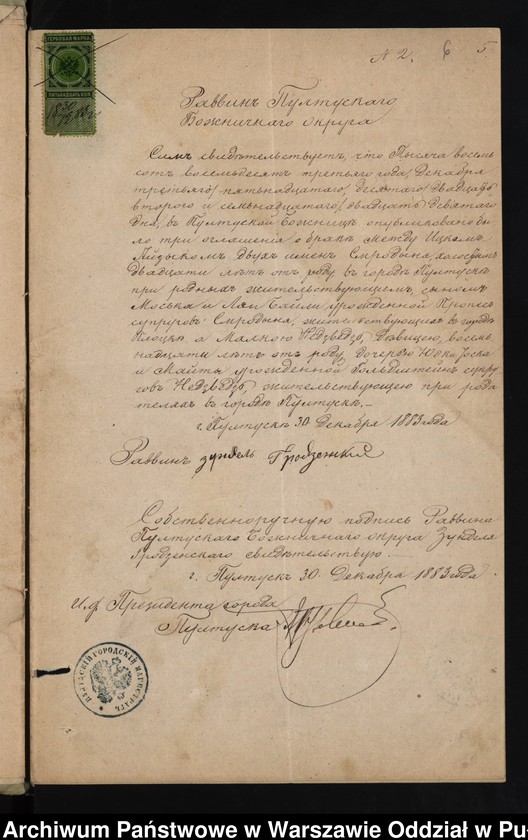 ГЕРБОВАЯ МАРКА
ПЯТЬНАДЦАТЬ КОП.
N 2. 6 5
Раввинъ Пултускаго
Божничнаго округа
Симъ свидѣтельствуетъ, что Тысяча восемь
сотъ восемьдесятъ третьяго года, Декабря
третьяго/пятьнадцатаго/, десятаго/двадцать
втораго и семьнадцатаго/двадцать девятаго
дня, въ Пултуской Божницѣ опубликовано бы-
ло три оглашенія о бракѣ между Ицкомъ
двухъ именъ Смродына, холостымъ
двадцати лѣтъ отъ роду въ городѣ Пултускѣ
при родныхъ жительствующемъ, сыномъ
Моська и Лаи Байли урожденной
супруговъ Смродына, жительствующихъ въ городѣ
Плоцкѣ а Малкою Недзвѣдзь, дѣвицею, восемь
надцати лѣтъ отъ роду, дочерью
и Майты урожденной Гольдштейнъ супру
говъ Недзвѣдзь, жительствующею при роди
теляхъ въ городѣ Пултускѣ.—
г. Пултускъ 30 Декабря 1883 года
Раввинъ Зундель Гродзенскій
Собственноручную подпись Раввина
Пултускаго Божничнаго округа Зунделя
Гродзенскаго свидѣтельствую.
г. Пултускъ 30 Декабря 1883 года
И. д. Президента города
Пултуска
ПУЛТУССКІЙ ГОРОДСКІЙ МАГИСТРАТЪ
Archiwum Państwowe w Warszawie Oddział w Pu